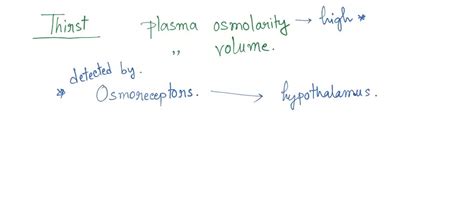 Thirst plasma osmolarity → high *
,, volume.
detected by.
* Osmoreceptors. → hypothalamus.